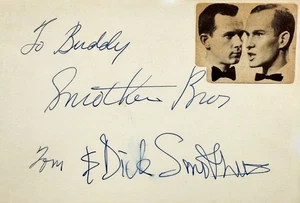 To Buddy
Smothers Bros
Tom & Dick Smothers